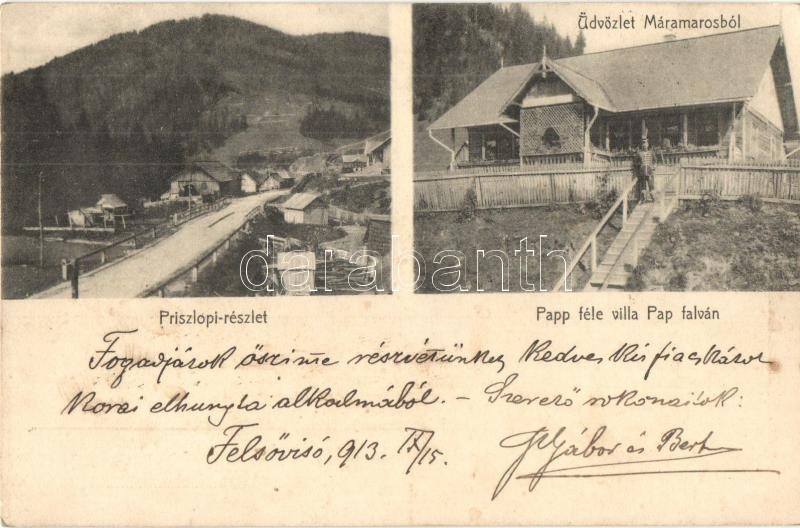 Üdvözlet Máramarosból
darabanth
Priszlopi-részlet
Papp féle villa Pap falván
Fogadjátok őszinte részvétünket kedves kis fiacskátok
korai elhunyta alkalmából. – Szerető rokonaitok:
Felsővisó, 913. IX/15.
Gábor és Berta